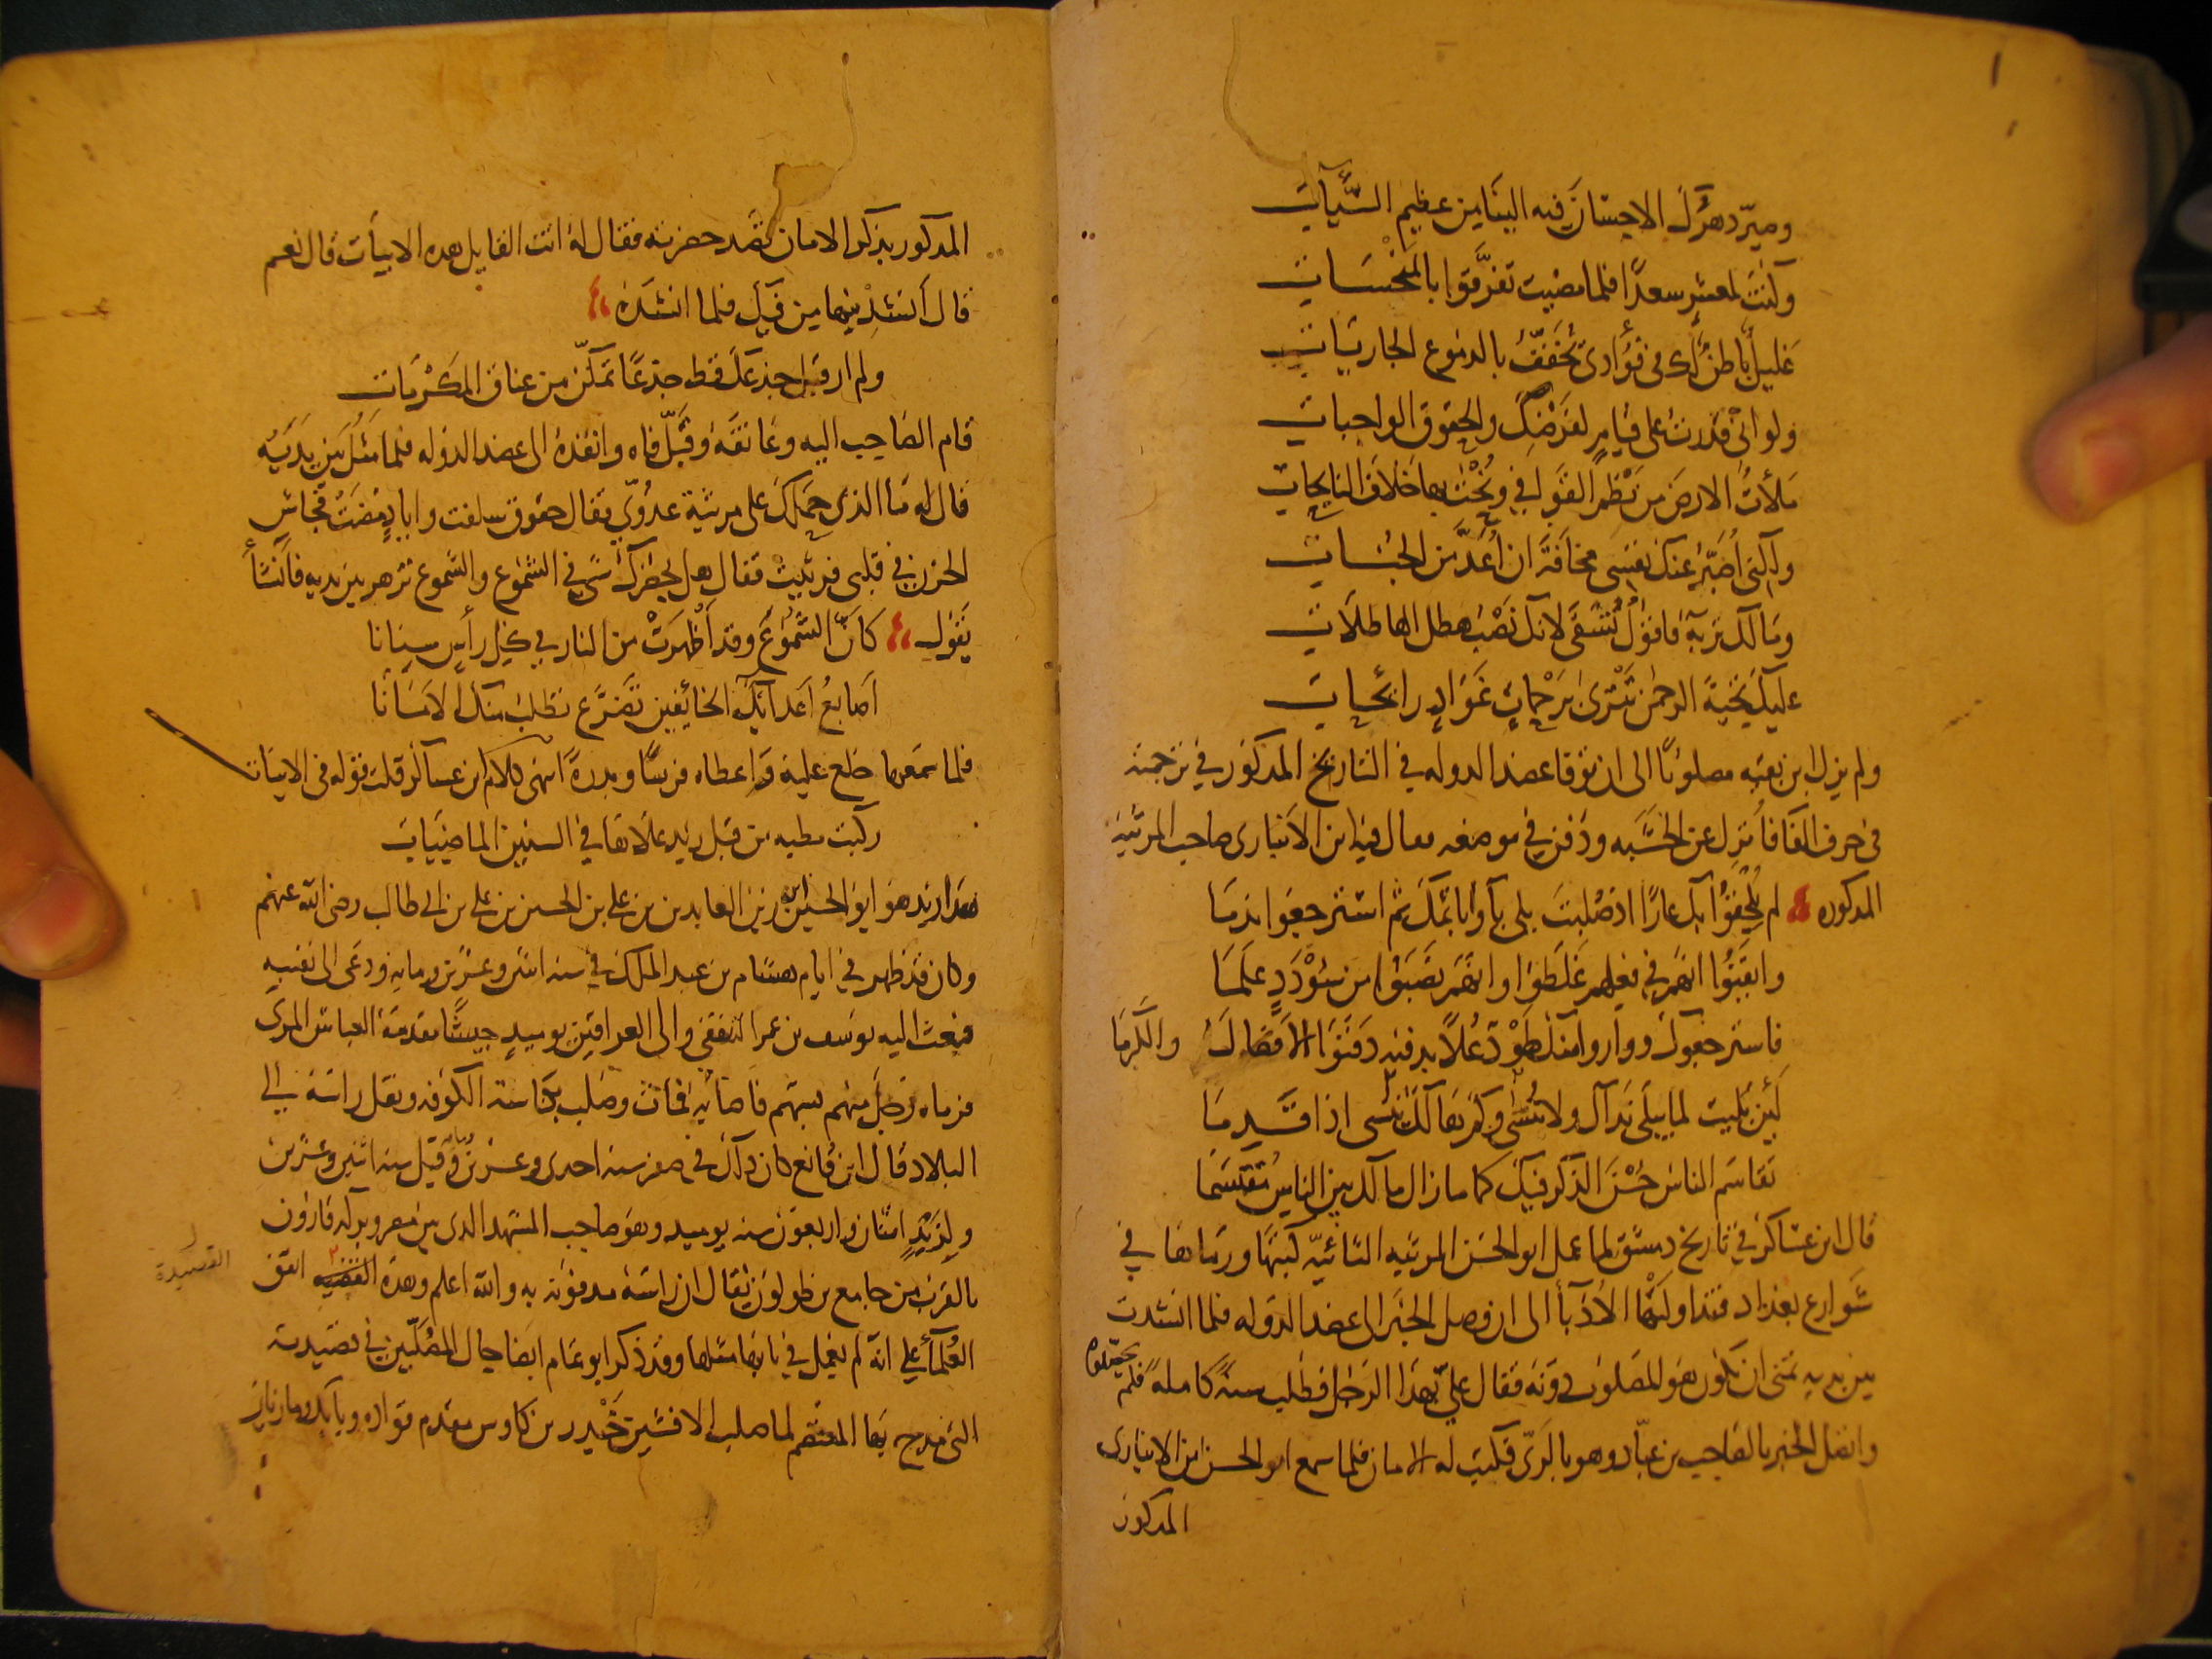 وصير دهرك الاحسان فيه الينا من عظيم السيآت
وكنت لمعشر سعدًا فلما مضيت تفرقوا بالمنحسات
غليل باطن لك في فؤادى تخفف بالدموع الجاريات
ولو انى قدرت على قيام لفرضك والحقوق الواجبات
ملأت الارض من نظم القوافى ونحت بها خلاف النايحات
ولكنى اصبر عنك نفسى مخافة ان اعد من الجنات
ومالك تربة فاقول تسقى لانك نصب هطل الهاطلات
عليك تحية الرحمن تترى برحمات غواد رائحات
ولم يزل ابن بقيه مصلوبًا الى ان توفا عضد الدوله في التاريخ المذكور في ترجمته
فى حرف الفا فأنزل عن الخشبه ودفن في موضعه فقال فيه ابن الانبارى صاحب المرثيه
المذكوره لم يلحقوا بك عارًا اذ صلبت بلى بآوا بأثمك ثم استرجعوا ندما
وايقنوا انهم في فعلهم غلطوا وانهم نصبوا من سؤدد علما
فاسترجعوك وواروا منك طود علاً بدفنه دفنوا الافضال والكرما
لئن بليت لما يبلى نداك ولا تنسى وكم هالك ينسى اذا قدما
تقاسم الناس حسن الذكر فيك كما مازال مالك بين الناس مقتسما
قال ابن عساكر في تاريخ دمشق لما عمل ابو الحسن المرثيه التائيه كتبها ورماها في
شوارع بغداد فتداولتها الادبآ الى ان وصل الخبر الى عضد الدوله فلما انشدت
بين يديه تمنى ان يكون هو المصلوب دونه فقال على بهذا الرجل فطلب سنة كاملة فلم
واتصل الخبر بالصاحب بن عباد وهو بالرى فكتب له الامان فلما سمع ابو الحسن ابن الانبارى
المذكور
المذكور بذكر الامان قصد حضرته فقال له انت القايل هذه الابيات قال نعم
قال أنشدنيها من فيك فلما انشده
ولم ار قبل جذعك قط جذعًا تمكن من عناق المكرمات
قام الصاحب اليه وعانقه وقبل فاه وانفذه الى عضد الدوله فلما مثل بين يديه
قال له ما الذى حملك على مرثية عدوى فقال حقوق سلفت واياد مضت فجاش
الحزن في قلبى فرثيت فقال هل يحضرك شى في الشموع والشموع تزهر بين يديه فأنشأ
يقول كأن الشموع وقد أظهرت من النار في كل رأس سنانا
اصابع أعدائك الخائفين تضرع تطلب منك الامانا
فلما سمعها خلع عليه واعطاه فرسًا وبدرة انتهى كلام ابن عساكر قلت قوله في الابيات
ركبت مطيه من قبل زيد علاها في السنين الماضيات
هذا زيد هو ابو الحسين بن زين العابدين بن على بن الحسين بن على بن ابى طالب رضى الله عنهم
وكان قد ظهر في ايام هشام بن عبد الملك في سنه اثنى وعشرين ومايه ودعى الى نفسه
فبعث اليه يوسف بن عمر الثقفي والى العراقين يوميد جيشًا مقدمه العباس المرى
فرماه رجل منهم بسهم فاصابه فمات وصلب بكناسة الكوفه ونقل راسه الى
البلاد قال ابن قانع كان ذلك في صفر سنه احدى وعشرين وقيل سنه اثنين وعشرين
ولزيد اثنان واربعون سنه يوميد وهو صاحب المشهد الذى بين مصر وبركه قارون
بالقرب من جامع بن طولون يقال ان راسه مدفونه به والله اعلم وهذه القضيه اتفق
القصيدة
العلمآء على انه لم يعمل في بابها مثلها وقد ذكر ابو تمام ايضا حال المصلبين في قصيدته
التى مدح بها المعتصم لما صلب الافشين خيدر بن كاوس مقدم قواده وبابك ومازيار